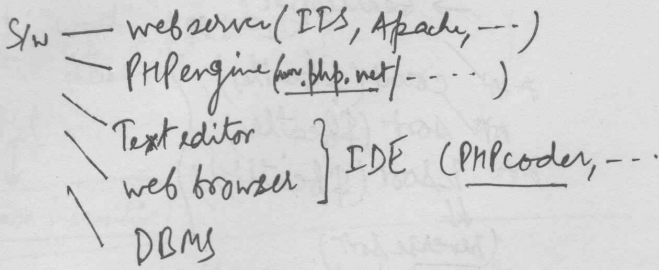 S/w — webserver (IIS, Apache, ...)
PHPengine (www.php.net/.....)
Text editor
web browser ] IDE (PHPcoder, ...
DBMS